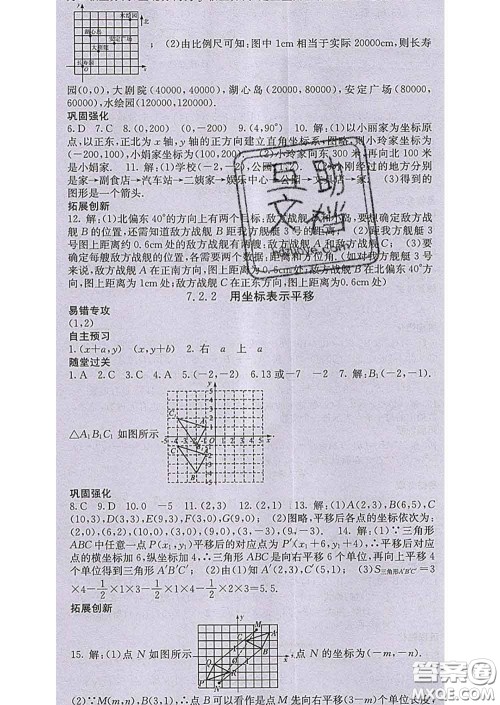 水绘园
北
湖心岛
安定广场
大剧院
长寿园
；(2)由比例尺可知：图中1cm相当于实际20000cm，则长寿
园(0,0)，大剧院(40000,40000)，湖心岛(20000,80000)，安定广场(80000,
60000)，水绘园(120000,120000).
巩固强化
6.D 7.C 8.(0,200) (0,-200) 9.(4,90°) 10. 解：(1)以小丽家为坐标原
点，以正东、正北为x轴、y轴的正方向建立直角坐标系，图略，则小玲家为
(-200,100)，小娟家坐标为(100,200)；(2)小玲家向东300米，再向北100米
是小娟家. 11. 解：(1)学校(-2,-2)，公园 (2)小刚经过的地方分
别是家→副食店→汽车站→二姨家→娱乐中心→公园 →家. (3)得到的
图形是一个箭头.
拓展创新
12. 解：(1)北偏东40°的方向上有两个目标：敌方战舰 和小岛，要想确定敌方战
舰B的位置，还需知道敌方战舰B距我方舰艇3号的距离. (2)距我方舰艇3
号图上距离约0.6cm处的敌方战舰有两艘：敌方战舰A和敌方战舰C. (3)要
确定每艘敌方战舰的位置，各需要两个数据：距离和方向角.(如对我方舰艇3号
来说，敌方战舰A在正南方向，图上距离为0.6cm处；敌方战舰B在北偏东40°方
向，图上距离为1cm处；敌方战舰C在正东方向，图上距离为0.6cm处)
7.2.2 用坐标表示平移
易错专攻
(1,2)
自主预习
1.(x+a,y) (x,y+b) 2. 右 a 上 a
随堂过关
1.A 2.C 3.A 4.A 5.(-2,-2) 6.13或-7 -2 7. 解：B₁(-2,-1).
△A₁B₁C₁如图所示.
巩固强化
8.C 9.D 10.0 -5 11.(2,3) 12.(2,1) 13. 解：(1)A(2,3),B(6,5),C
(10,3),D(3,3),E(9,3),F(3,0),G(9,0)；(2)图略，平移后各点的坐标依次为：
(2,0),(6,2),(10,0),(3,0),(9,0),(3,-3),(9,-3). 14. 解：(1)∵三角形
ABC中任意一点P(x₁,y₁)平移后的对应点为P′(x₁+6,y₁+4)，∴平移后对应
点的横坐标加6，纵坐标加4，∴三角形ABC是向右平移6个单位，再向上平移4
个单位得到三角形A′B′C′；(2)由(1)知A′(2,3),C′(5,1)；(3)S三角形A′B′C′=3
×4-1/2×3×1-1/2×4×1-1/2×2×3=5.5.
拓展创新
15. 解：(1)点N如图所示 ，点N的坐标为(-m,-n).
(2)∵M(m,n),B(3,1)，∴点B可以看作是点M先向右平移(3-m)个单位长度，
答案圈
MXQE.COM